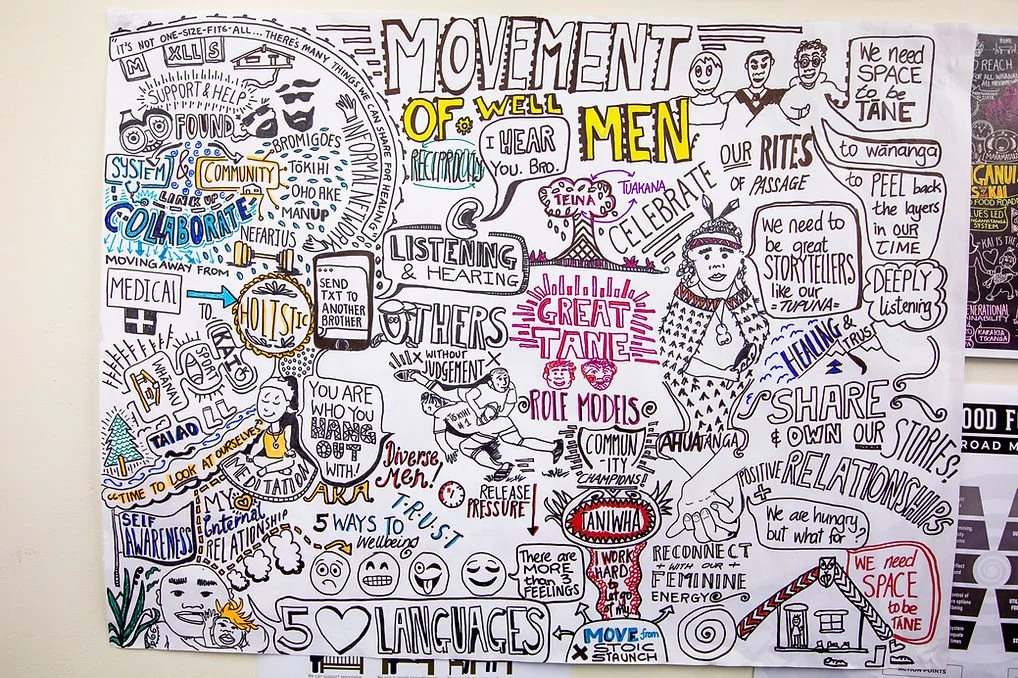 "IT'S NOT ONE-SIZE-FITS-ALL... THERE'S MANY THINGS WE CAN SHARE FOR HEALING
M XLL S
SUPPORT & HELP
FOUND
INFORMAL NATION
SYSTEM &
COMMUNITY
LINK UP
COLLABORATE
BROMIGOES
TŌKIHI
OHO AKE
MANUP
NEFARIUS
MOVING AWAY FROM
MEDICAL
TO...
HOLISTIC
SEND
TXT TO
ANOTHER
BROTHER
MOVEMENT
OF WELL
MEN
RECIPROCITY
I HEAR
YOU, BRO.
LISTENING
& HEARING
OTHERS
WITHOUT
JUDGEMENT
TEINA
TUAKANA
CELEBRATE
We need
SPACE
to be
TĀNE
to wānanga
to PEEL back
the layers
in OUR
TIME
OUR RITES
OF PASSAGE
We need to
be great
STORYTELLERS
like our
=TUPUNA=
DEEPLY
listening
HEALING &
TRUST
GREAT
TANE
ROLE MODELS
COMMUN
ITY
CHAMPIONS!!
AHUATANGA
SHARE
& OWN OUR
STORIES!
POSITIVE RELATIONSHIPS
+
WHANAU
SPORT
KAI
TAIAO
"TIME TO LOOK AT OURSELVES"
MEDITATION
YOU ARE
WHO YOU
HANG
OUT
WITH!
A.K.A.
Diverse
Men!
TRUST
RELEASE
PRESSURE
#1
SELF
AWARENESS
MY
Internal
RELATIONSHIP
5 WAYS TO
Wellbeing
There are
MORE
than 3
FEELINGS
5 LANGUAGES
TANIWHA
I WORK
HARD
to let go
of my
RECONNECT
WITH OUR
FEMININE
ENERGY
MOVE from
STOIC
STAUNCH
We are hungry
but what for?
WE need
SPACE
to be
TĀNE
REACH
KAI IS THE
KARAKIA
TIKANGA
OOD F
ROAD M
ACTION POINTS